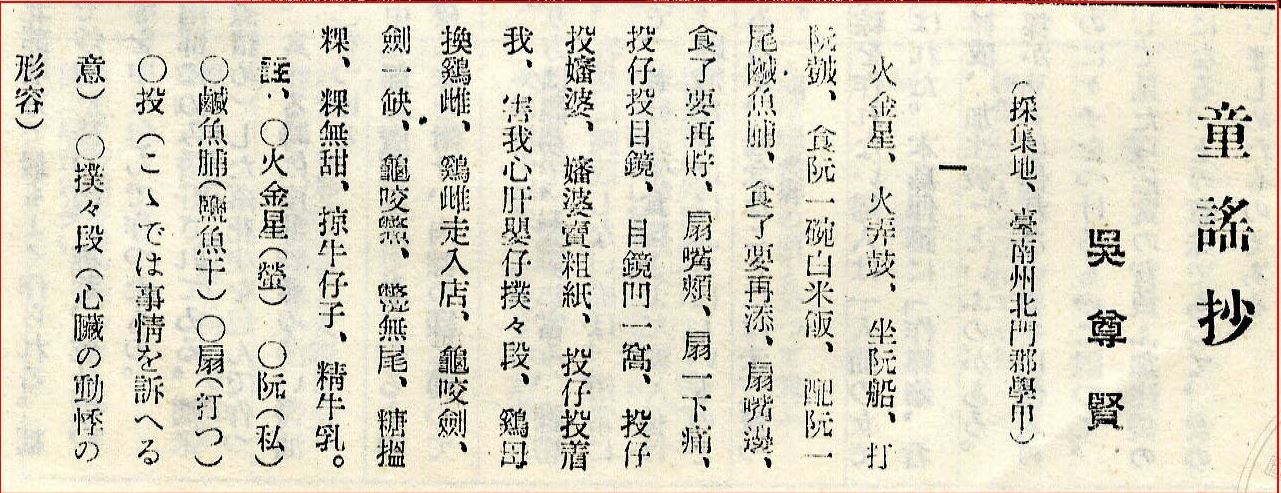 童謠抄
吳尊賢
(採集地、臺南州北門郡學甲)
一
火金星、火弄鼓、坐阮船、打
阮鼓、食阮一碗白米飯、配阮一
尾鹹魚脯、食了要再添、扇嘴邊、
食了要再貯、扇嘴頰、扇一下痛、
投仔投目鏡、目鏡凹一窩、投仔
投嬸婆、嬸婆賣粗紙、投仔投着
我、害我心肝嬰仔撲々段、鷄母
換鷄雌、鷄雌走入店、龜咬劍、
劍一缺、龜咬鱉、鱉無尾、糖搵
粿、粿無甜、掠牛仔子、精牛乳。
註、〇火金星(螢) 〇阮(私)
〇鹹魚脯(鹽魚干)〇扇(打つ)
〇投(こゝでは事情を訴へる
意) 〇撲々段(心臟の動悸の
形容)